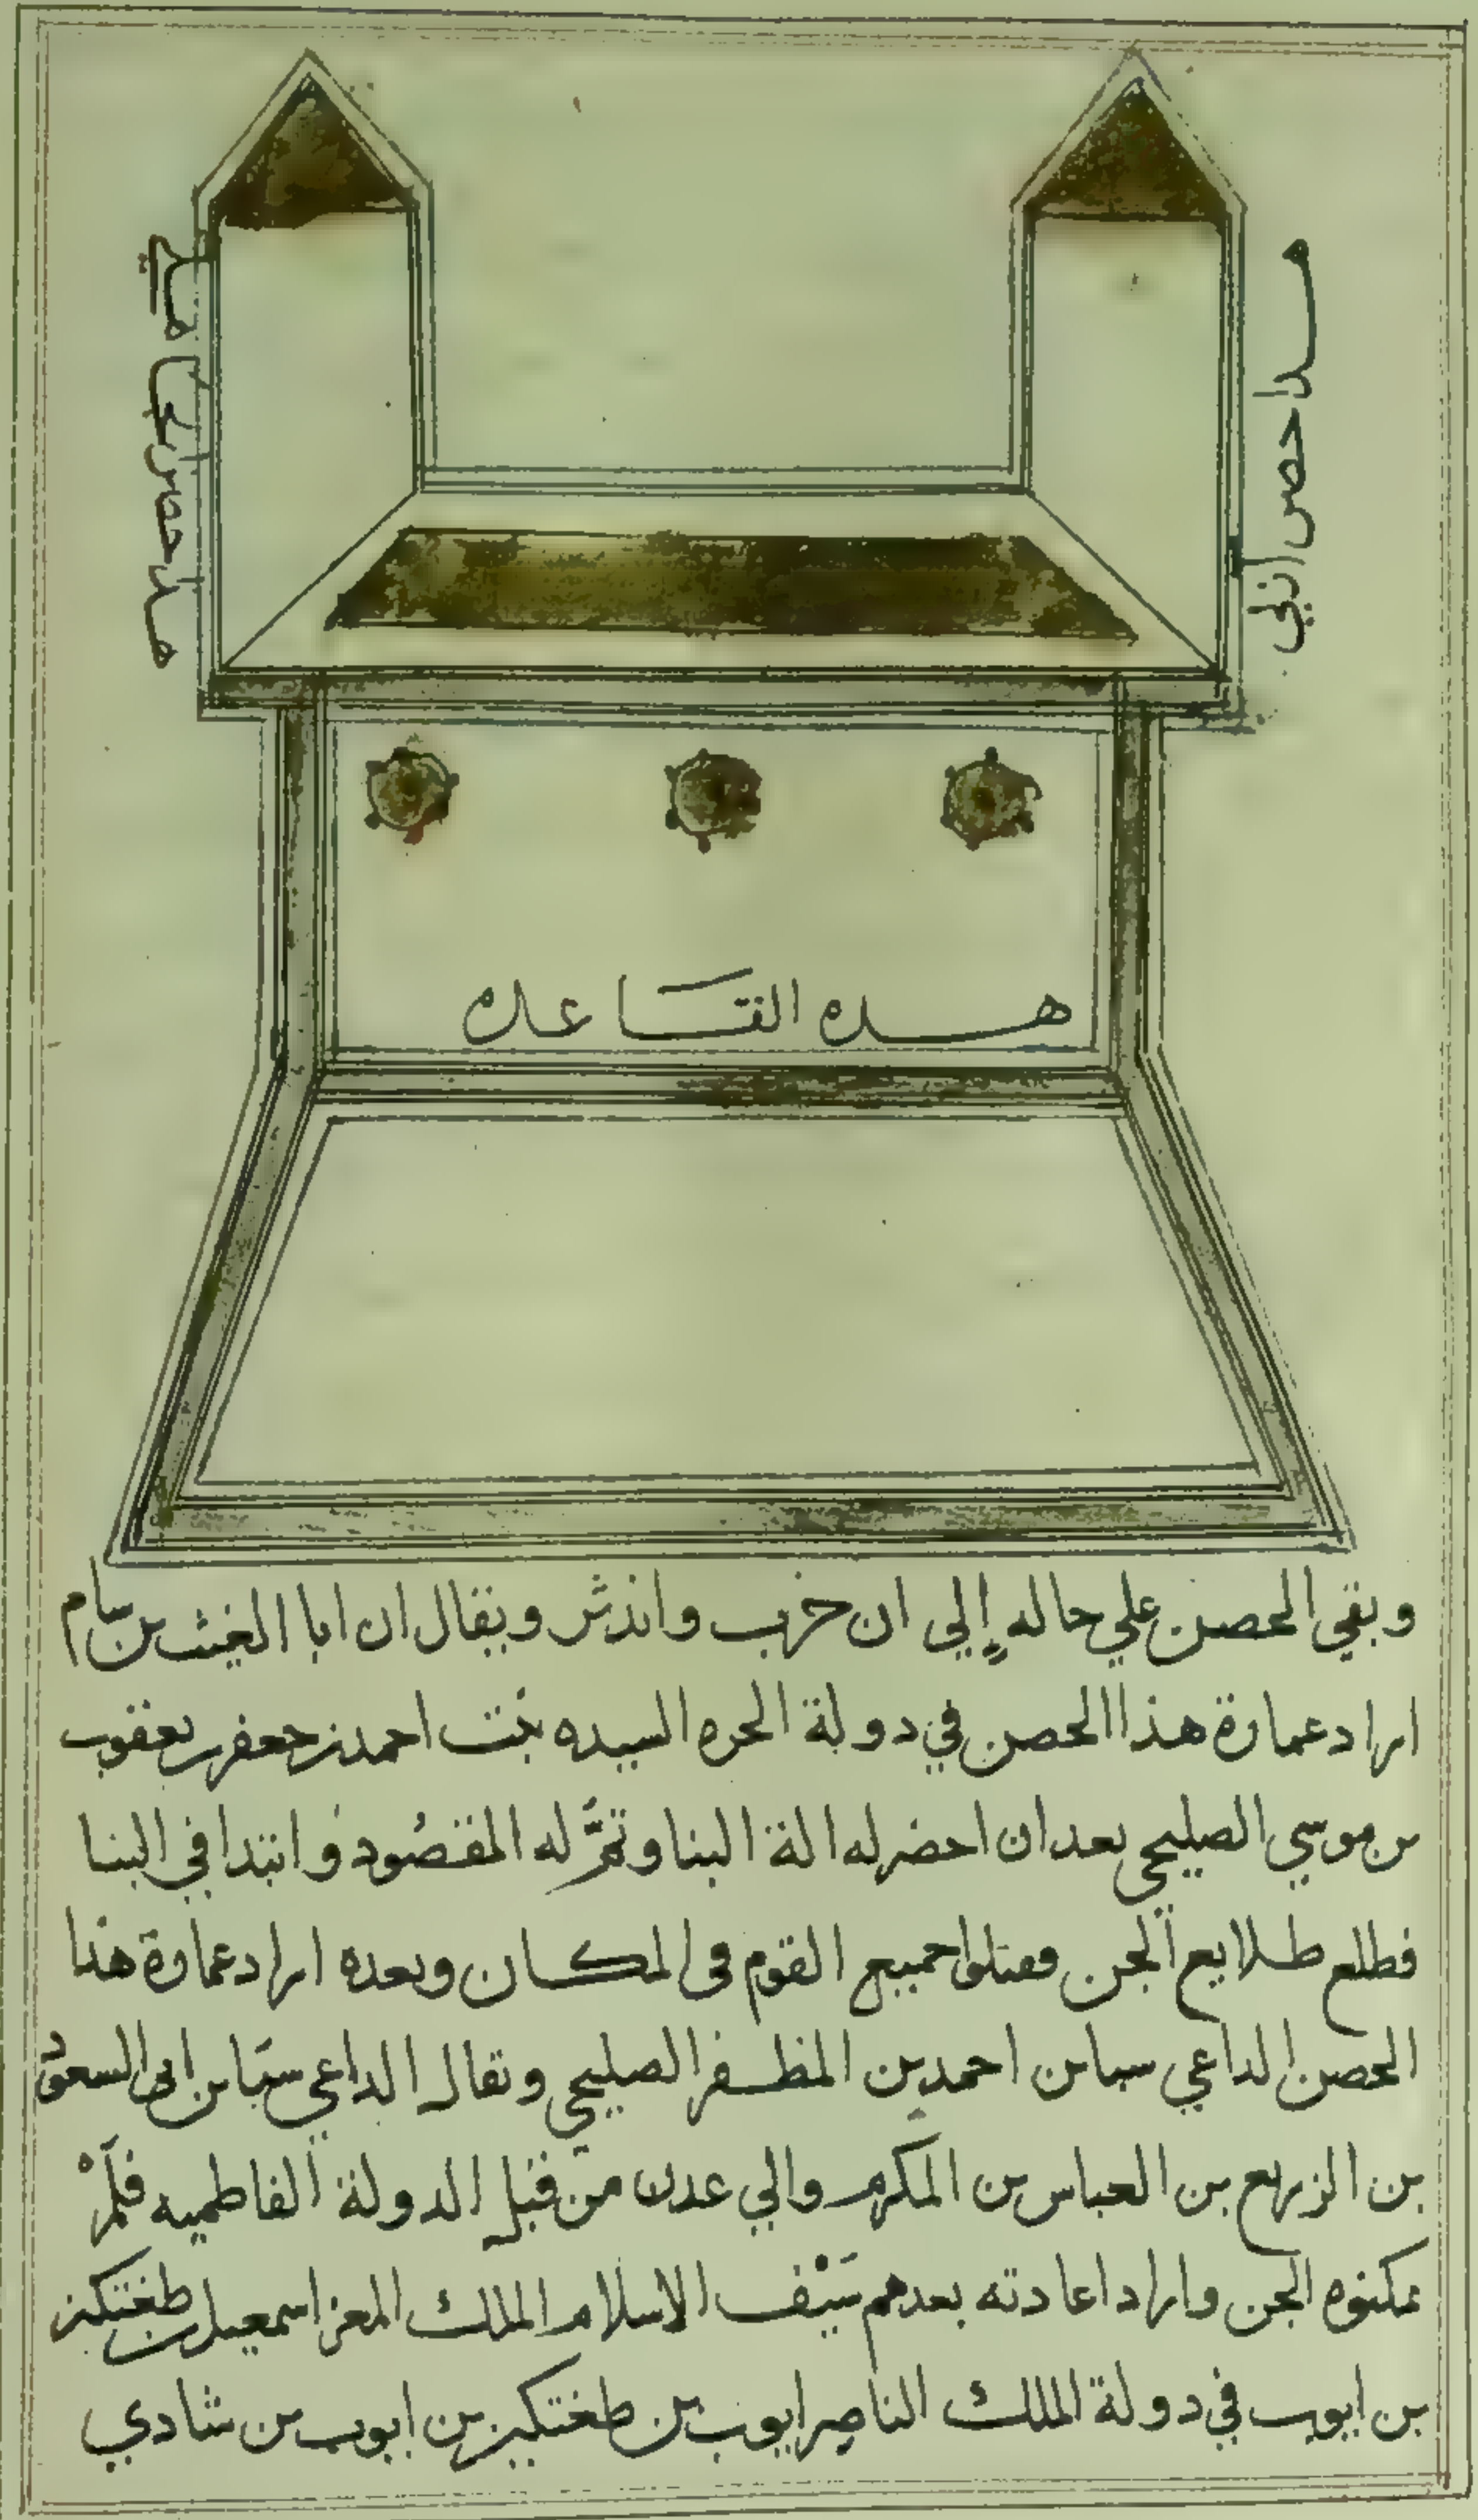 هدا حصن انلي
هدا حصن
هده القاعده
وبقي الحصن علي حاله إلي ان خرب واندثر ويقال ان ابا الغيث بن سام
اراد عمارة هذا الحصن في دولة الحره السيده بنت احمد بن جعفر بن يعقوب
بن موسي الصليحي بعد ان احضر له الة البنا وتمَّ له المقصُود وابتدا في البنا
فطلع طلايع الجن فقتلوا جميع القوم في المكان وبعده اراد عمارة هذا
الحصن الداعي سبا بن احمد بن المظفر الصليحي ويقال الداعي سبَا بن ابي السعود
بن الزريع بن العباس بن المكرم والي عدن من قبل الدولة الفاطميه فلَمْ
يمكنوه الجن واراد اعادته بعدهم سَيْف الاسلام الملك المعز اسمعيل بن طغتكين
بن ايوب في دولة الملك الناصر ايوب بن طغتكين بن ايوب بن شادي